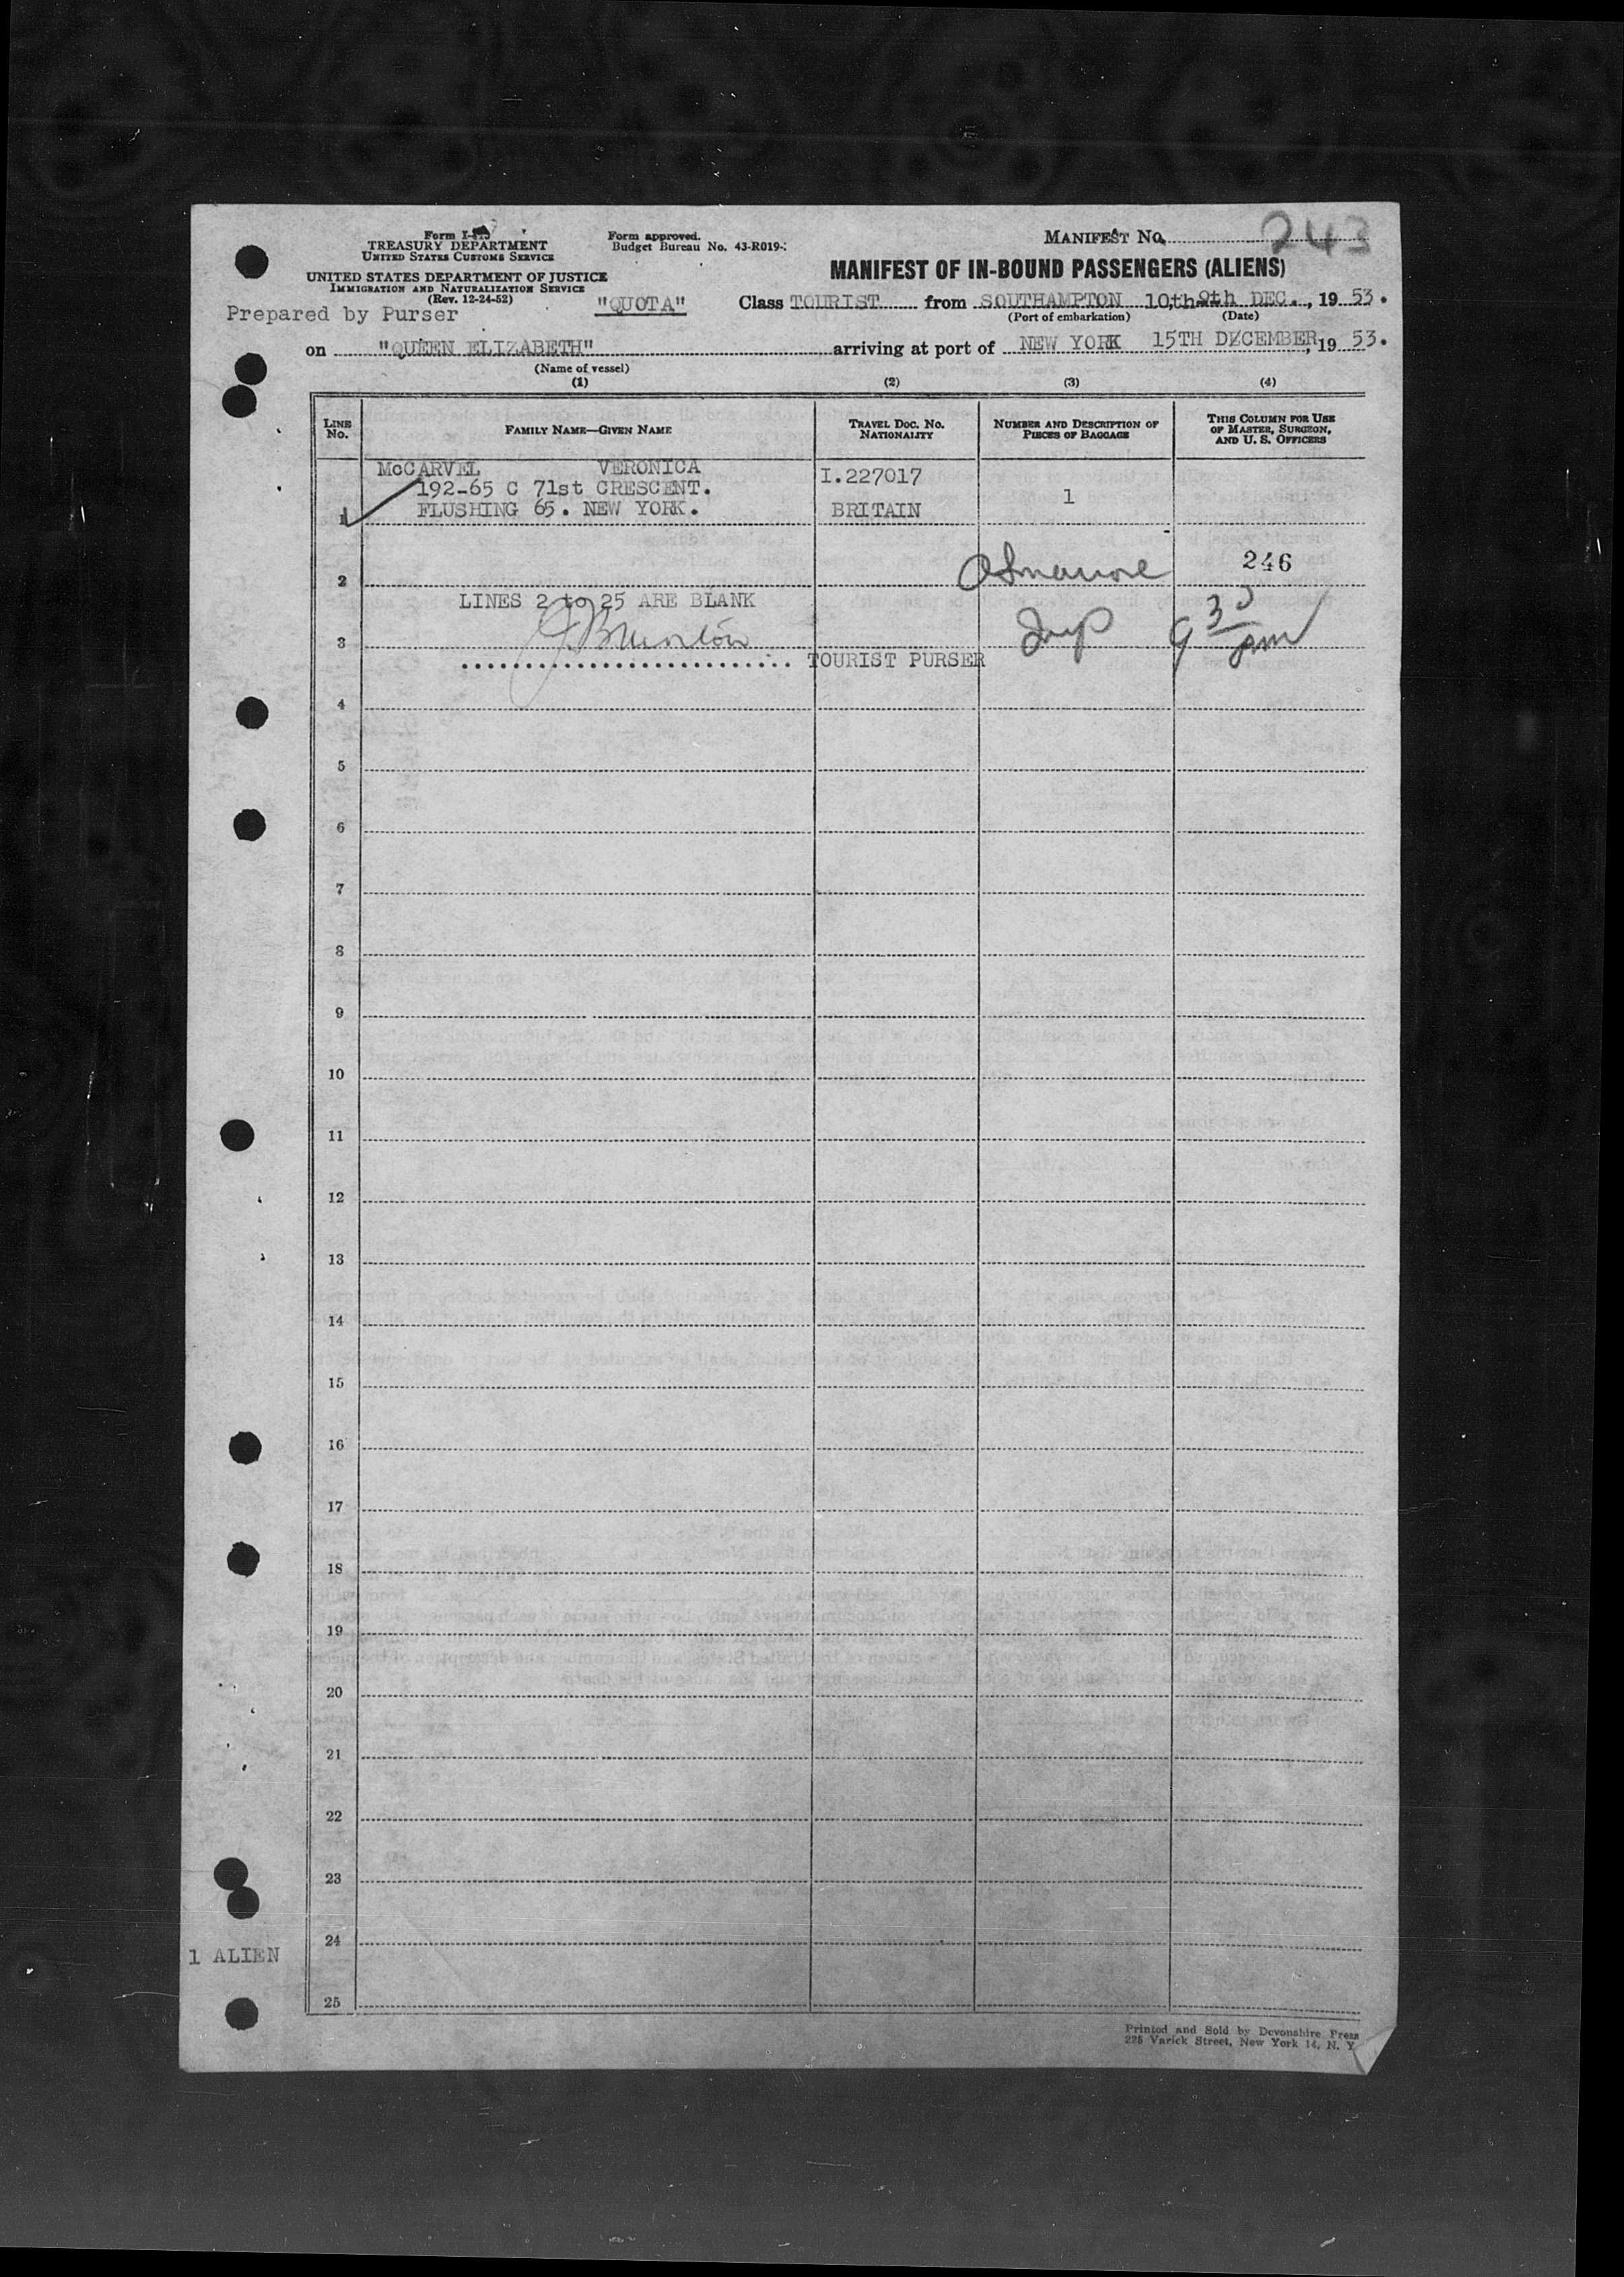 243
MANIFEST No.
Form I-
TREASURY DEPARTMENT
UNITED STATES CUSTOMS SERVICE
Form approved.
Budget Bureau No. 43-R019-
UNITED STATES DEPARTMENT OF JUSTICE
IMMIGRATION AND NATURALIZATION SERVICE
(Rev. 12-24-52)
MANIFEST OF IN-BOUND PASSENGERS (ALIENS)
Prepared by Purser
"QUOTA"
Class TOURIST from SOUTHAMPTON 10th 9th DEC., 19 53.
(Port of embarkation) (Date)
on "QUEEN ELIZABETH" arriving at port of NEW YORK 15TH DECEMBER, 19 53.
(Name of vessel)
(1) (2) (3) (4)
LINE No.
FAMILY NAME—GIVEN NAME
TRAVEL DOC. NO. NATIONALITY
NUMBER AND DESCRIPTION OF PIECES OF BAGGAGE
THIS COLUMN FOR USE OF MASTER, SURGEON, AND U. S. OFFICERS
McCARVEL VERONICA
192-65 C 71st CRESCENT. I.227017
1 FLUSHING 65. NEW YORK. BRITAIN 1
2 246
LINES 2 to 25 ARE BLANK
J. Brunton
3 9 30 pm
TOURIST PURSER
4
5
6
7
8
9
10
11
12
13
14
15
16
17
18
19
20
21
22
23
24
1 ALIEN
25
Printed and Sold by Devonshire Press
225 Varick Street, New York 14, N. Y.